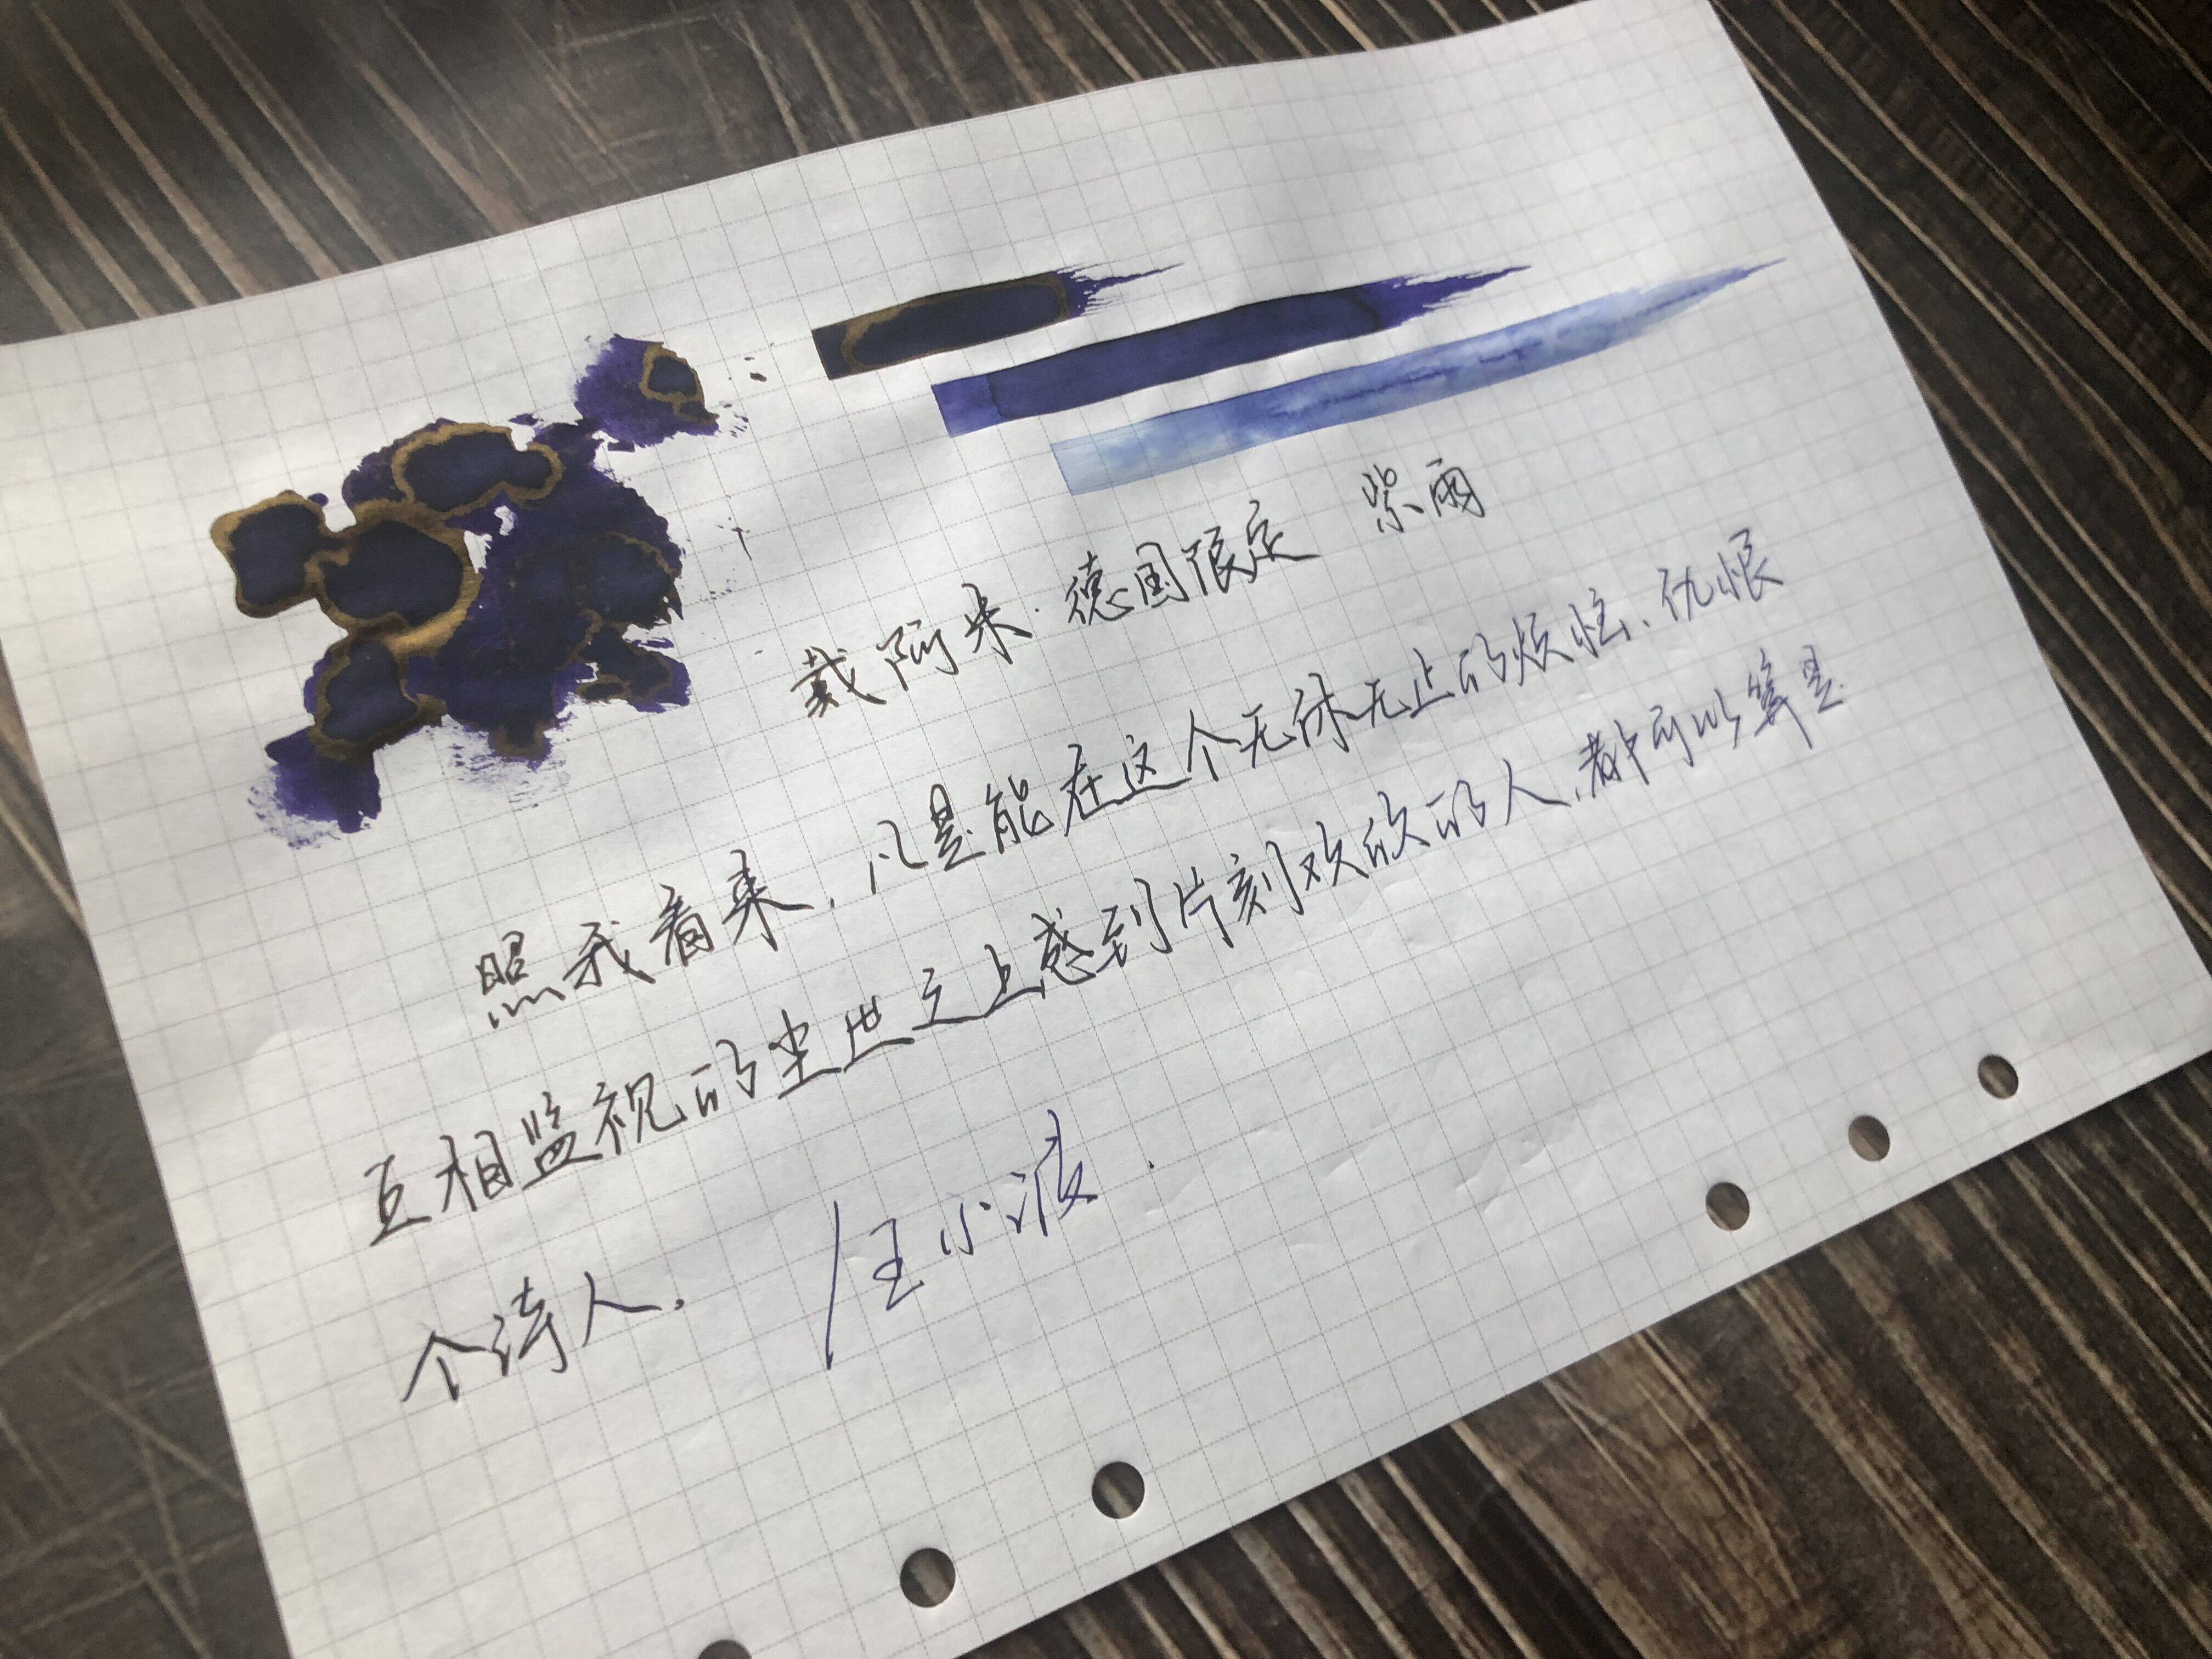 戴阿米·德国限定 紫雨
照我看来，凡是能在这个无休无止的烦忙、仇恨
互相监视的尘世之上感到片刻欢欣的人，都可以算是
个诗人。 /王小波.